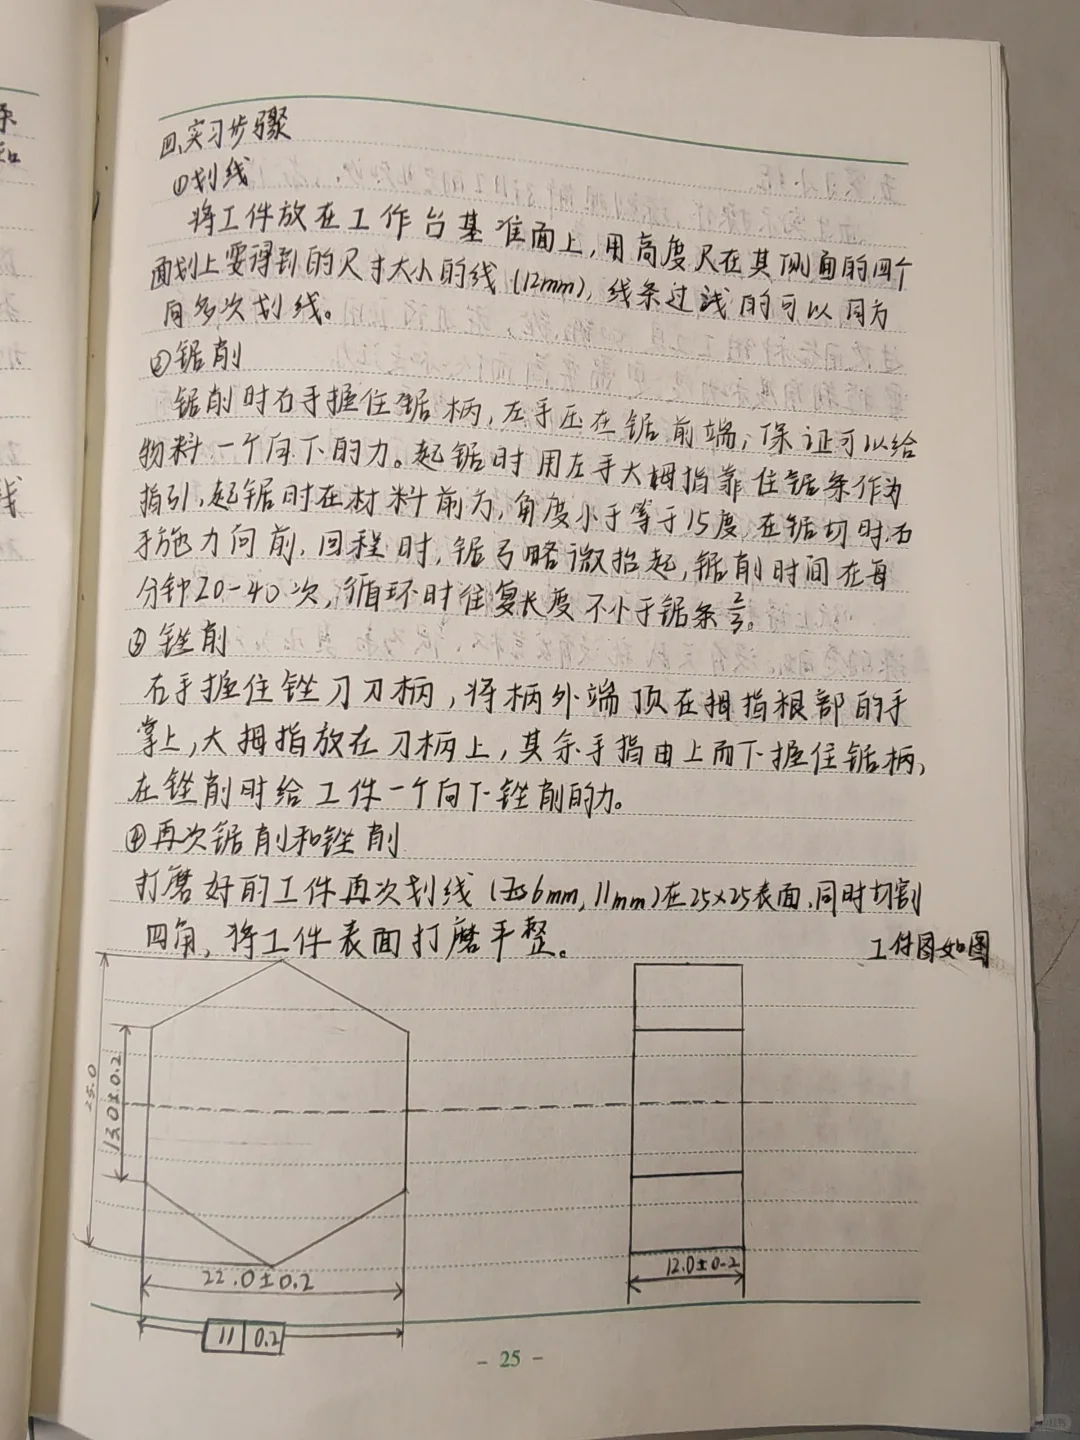 四、实习步骤
①划线
将工件放在工作台基准面上,用高度尺在其侧面的四个
面划上要得到的尺寸大小的线(12mm),线条过浅的可以同方
向多次划线。
②锯削
锯削时右手握住锯柄,左手压在锯前端,保证可以给
物料一个向下的力。起锯时用左手大拇指靠住锯条作为
指引,起锯时在材料前方,角度小于等于15度,在锯切时,右
手施力向前,回程时,锯弓略微抬起,锯削时间在每
分钟20-40次,循环时往复长度不小于锯条
③锉削
右手握住锉刀刀柄,将柄外端顶在拇指根部的手
掌上,大拇指放在刀柄上,其余手指由上而下握住锯柄,
在锉削时给工件一个向下锉削的力。
④再次锯削和锉削
打磨好的工件再次划线(6mm,11mm)在25×25表面,同时切割
四角,将工件表面打磨平整。
工件图如图
25.0
13.0±0.2
22.0±0.2
12.0±0.2
// 0.2
- 25 -